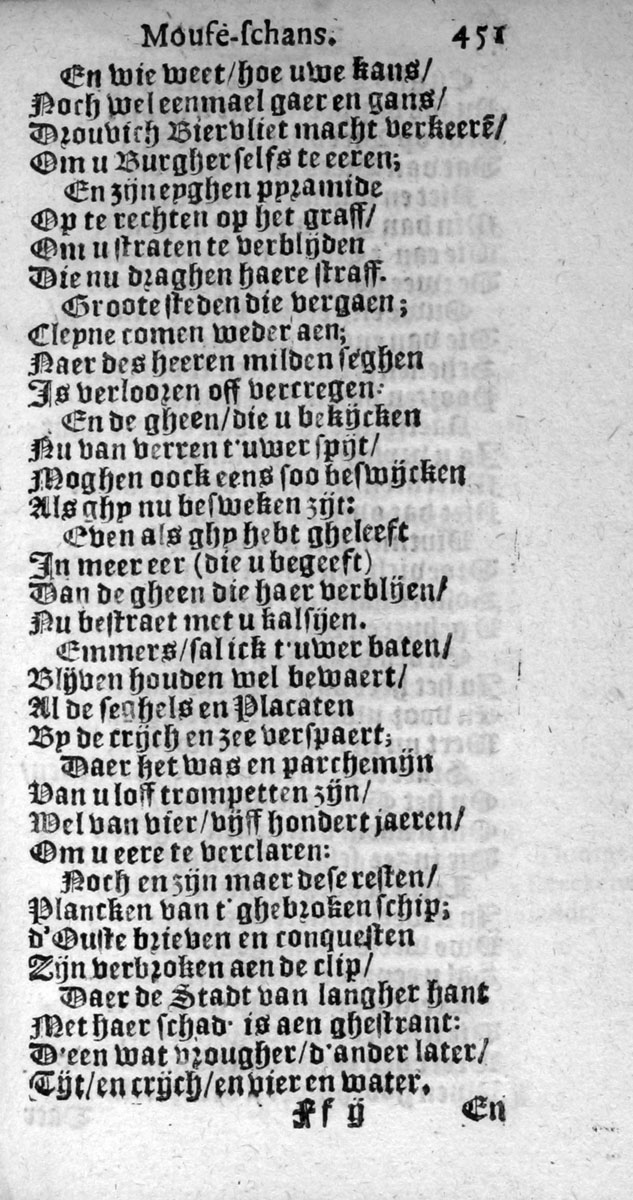 Moufe-ſchans. 451
En wie weet/hoe uwe kans/
Noch wel eenmael gaer en gans/
Drouvich Biervliet macht verkeerē/
Om u Burgher selfs te eeren;
En zijn eyghen pyramide
Op te rechten op het graff/
Om u straten te verblijden
Die nu draghen haere straff.
Groote steden die vergaen;
Cleyne comen weder aen;
Naer des heeren milden seghen
Is verlooren off vercregen:
En de gheen/die u bekijcken
Nu van verren t'uwer spijt/
Moghen oock eens soo beswijcken
Als ghy nu besweken zijt:
Even als ghy hebt gheleeft
In meer eer (die u begeeft)
Dan de gheen die haer verblijen/
Nu bestraet met u kalsijen.
Emmers/sal ick t'uwer baten/
Blijven houden wel bewaert/
Al de seghels en Placaten
By de crijch en zee verspaert;
Daer het was en parchemijn
Van u loff trompetten zijn/
Wel van vier/vijff hondert jaeren/
Om u eere te verclaren:
Noch en zijn maer dese resten/
Plancken van t'ghebroken schip;
d'Ouste brieven en conquesten
Zijn verbroken aen de clip/
Daer de Stadt van langher hant
Met haer schad' is aen ghestrant:
D'een wat vrougher/d'ander later/
Tijt/en crijch/en vier en water.
Ff ij En